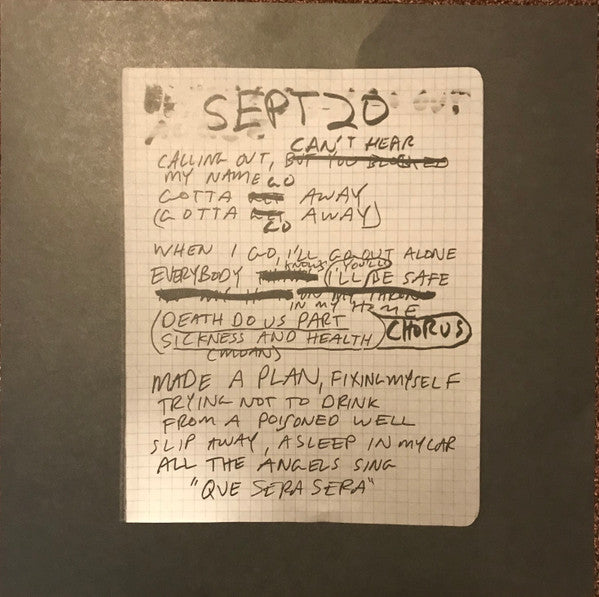 SEPT 20
OUT
CAN'T HEAR
CALLING OUT, BUT YOU BLOCKED
MY NAME GO
GOTTA AWAY
(GOTTA AWAY)
GO
WHEN I GO, I'LL GO OUT ALONE
KNOWS YOU'LL
EVERYBODY (I'LL BE SAFE
ON MY THRONE
IN MY HOME
(DEATH DO US PART
SICKNESS AND HEALTH) CHORUS
(MOAN)
MADE A PLAN, FIXING MYSELF
TRYING NOT TO DRINK
FROM A POISONED WELL
SLIP AWAY, ASLEEP IN MY CAR
ALL THE ANGELS SING
"QUE SERA SERA"